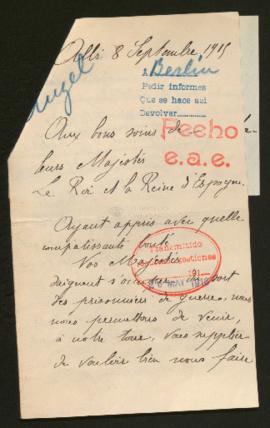 8 Septembre 1915
Berlin
Pedir informes
Que se hace así
Devolver
Aux bons soins de
Fecho
e.a.e.
leurs Majestés
Le Roi et la Reine d'Espagne.
Ayant appris avec quelle
compatissante bonté
Vos Majestés
daignent s'occuper du sort
des prisonniers de guerre, nous
nous permettons de venir,
à notre tour, vous supplier
de vouloir bien nous faire